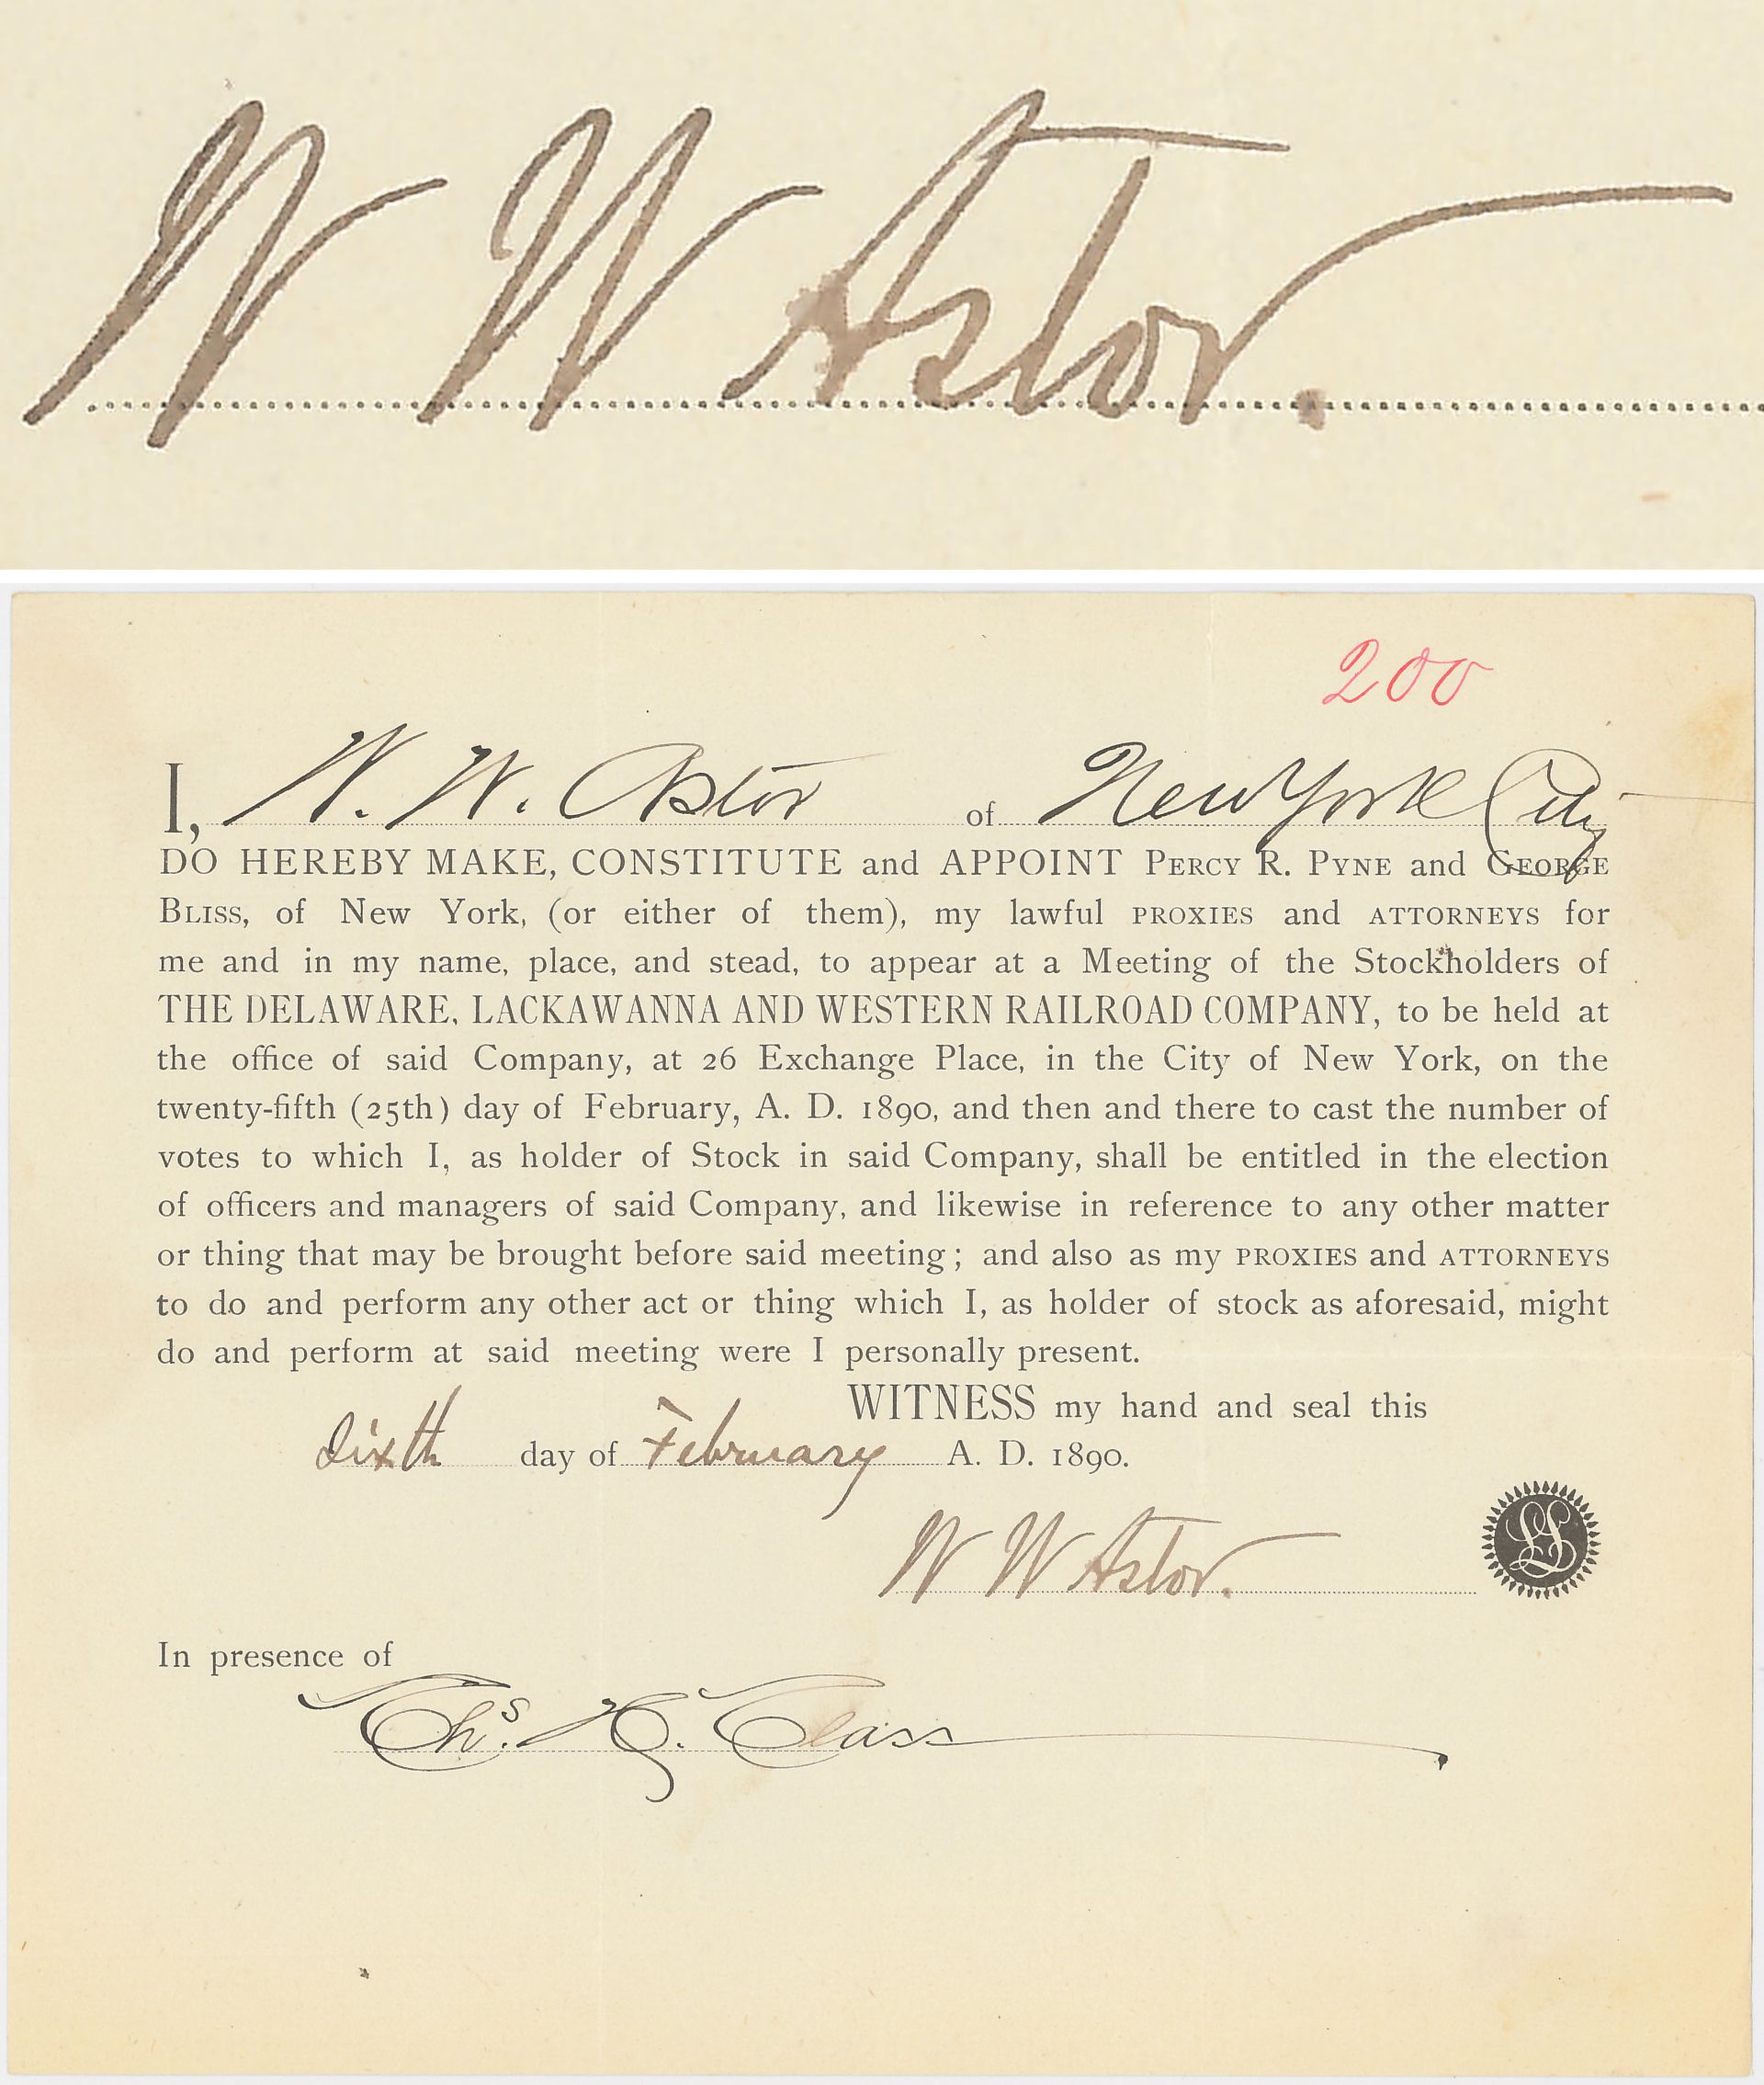 W W Astor.
200
I, W. W. Astor of New York City
DO HEREBY MAKE, CONSTITUTE and APPOINT PERCY R. PYNE and GEORGE
BLISS, of New York, (or either of them), my lawful PROXIES and ATTORNEYS for
me and in my name, place, and stead, to appear at a Meeting of the Stockholders of
THE DELAWARE, LACKAWANNA AND WESTERN RAILROAD COMPANY, to be held at
the office of said Company, at 26 Exchange Place, in the City of New York, on the
twenty-fifth (25th) day of February, A. D. 1890, and then and there to cast the number of
votes to which I, as holder of Stock in said Company, shall be entitled in the election
of officers and managers of said Company, and likewise in reference to any other matter
or thing that may be brought before said meeting; and also as my PROXIES and ATTORNEYS
to do and perform any other act or thing which I, as holder of stock as aforesaid, might
do and perform at said meeting were I personally present.
WITNESS my hand and seal this
sixth day of February A. D. 1890.
W W Astor.
LS
In presence of
Chs.